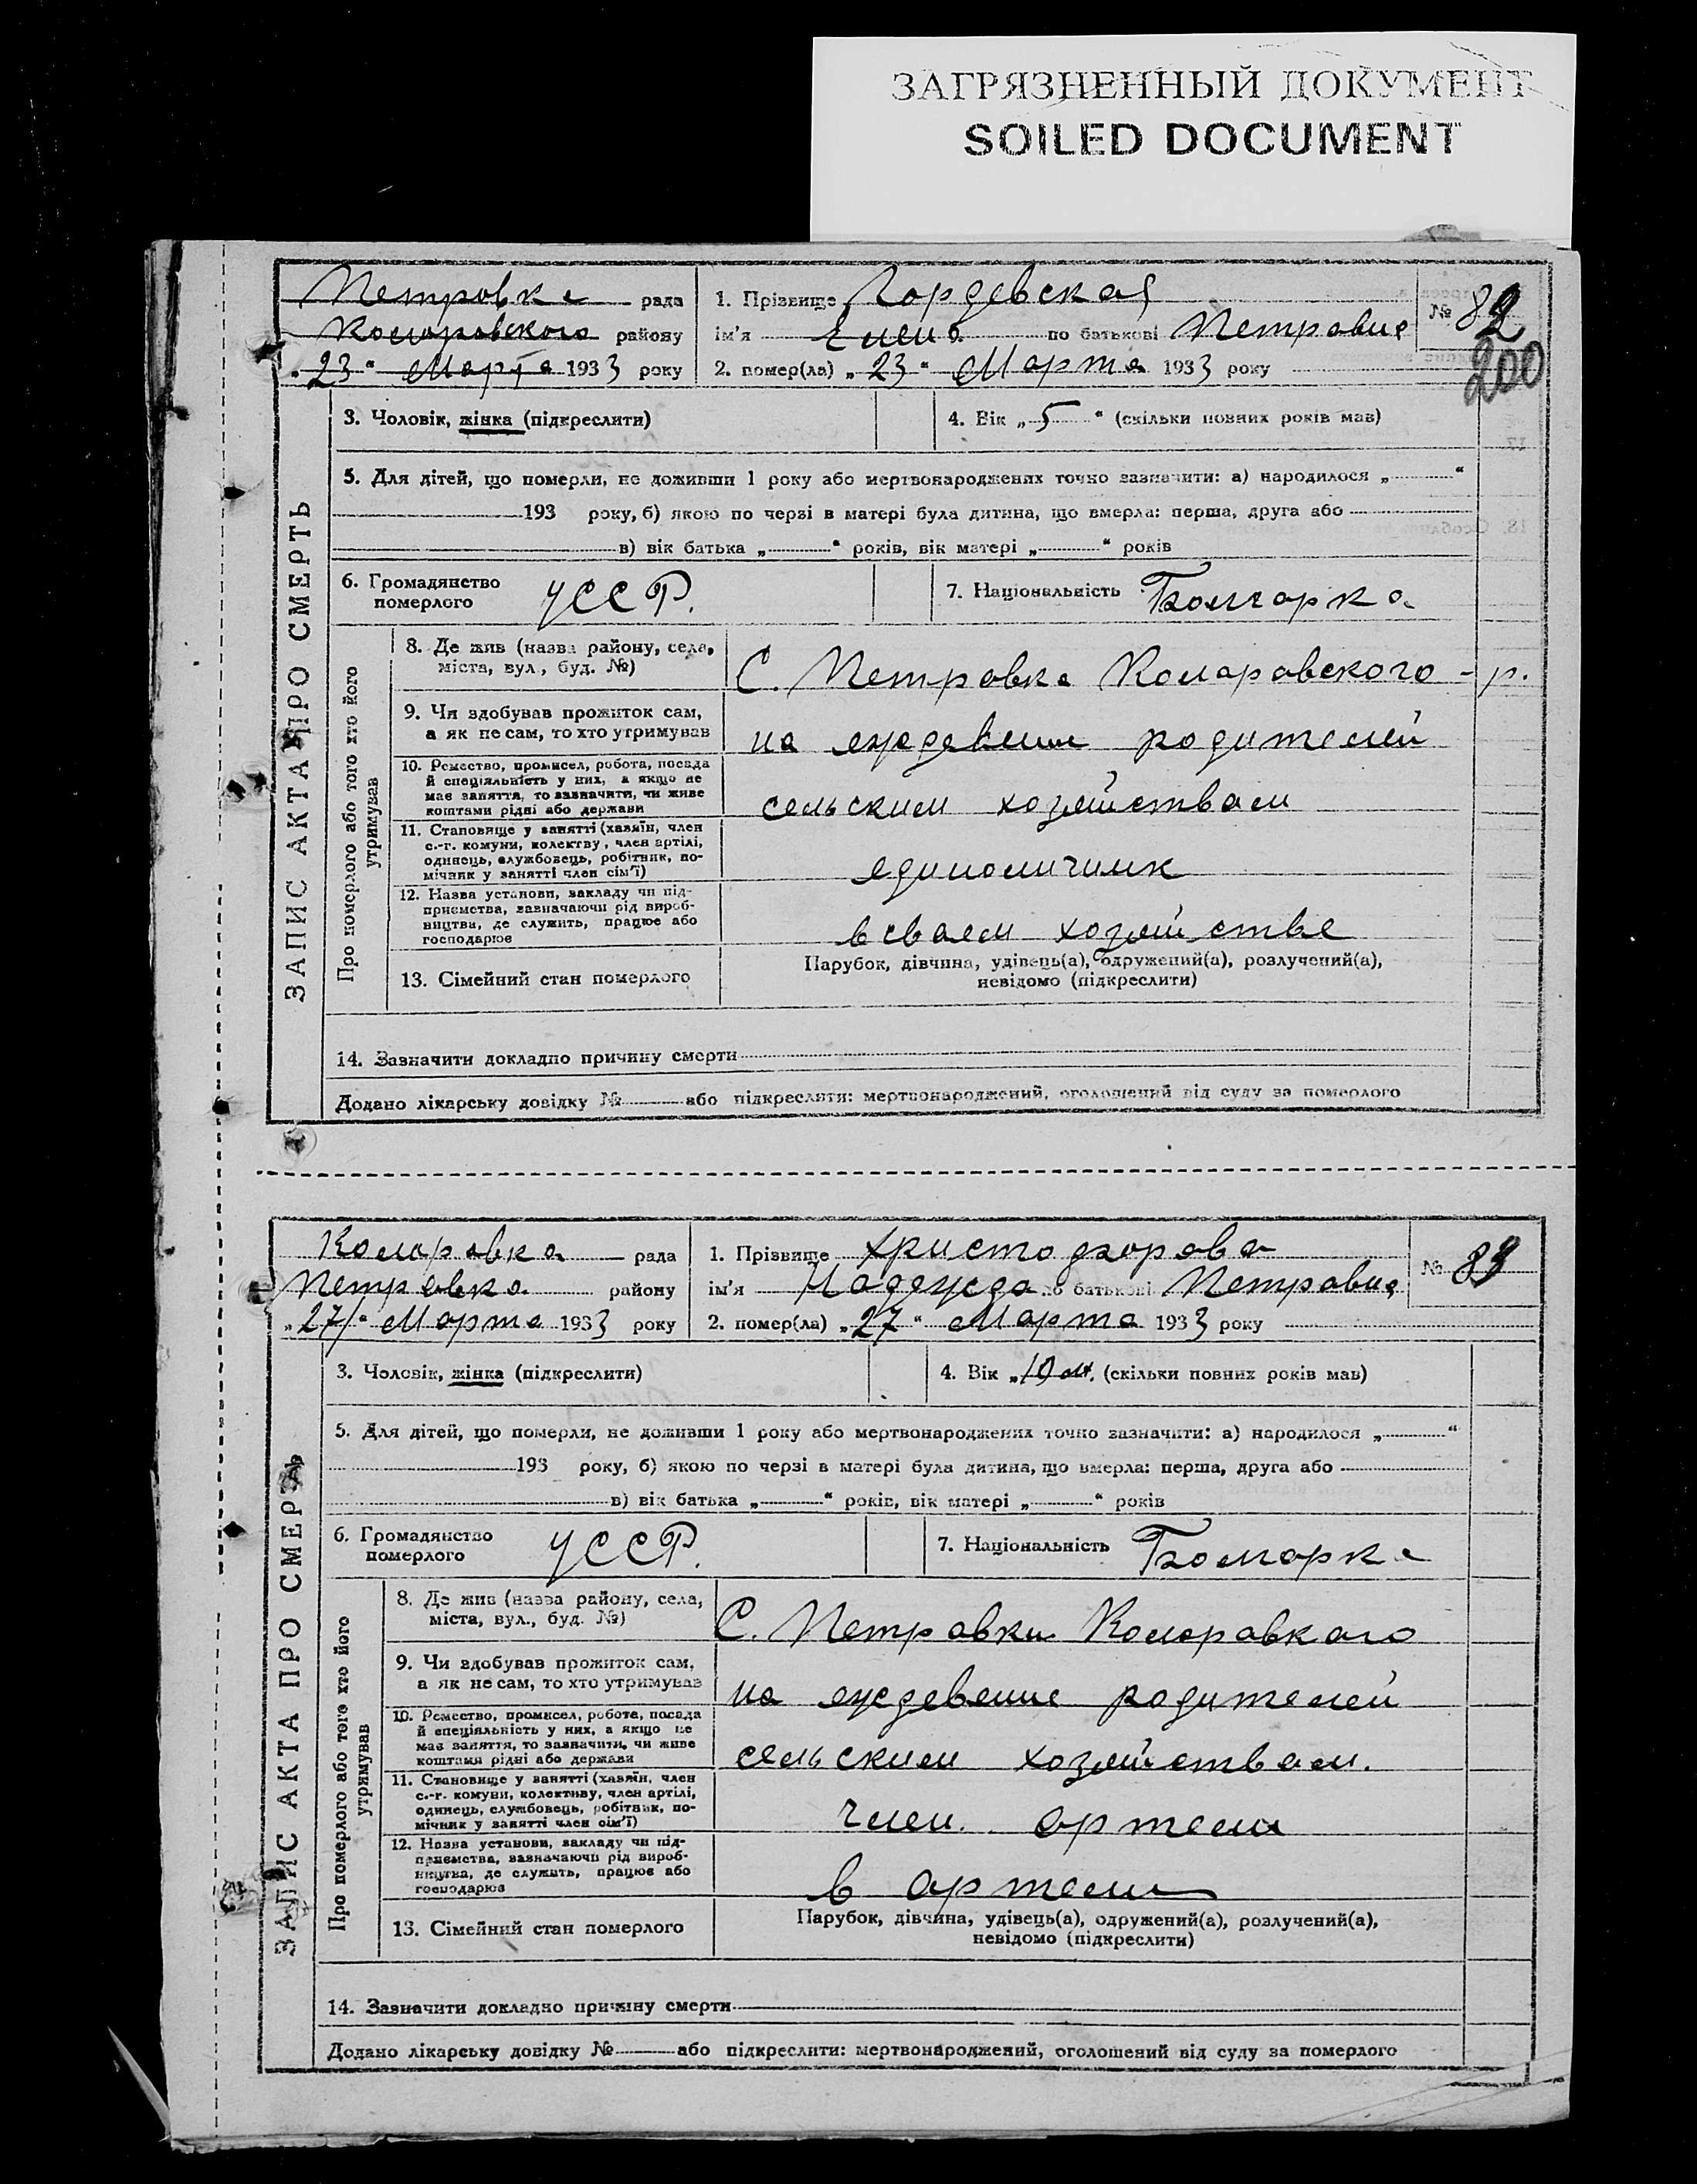 ЗАГРЯЗНЕННЫЙ ДОКУМЕНТ
SOILED DOCUMENT
Петровка рада
Комаровского району
„23“ Марта 1933 року
1. Прізвище Гордевская
ім'я по батькові Петровна
2. помер(ла) „23“ Марта 1933 року
№ 82
200
3. Чоловік, жінка (підкреслити)
4. Вік „5“ (скільки повних років мав)
5. Для дітей, що померли, не доживши 1 року або мертвонароджених точно зазначити: а) народилося „ “
193 року, б) якою по черзі в матері була дитина, що вмерла: перша, друга або
в) вік батька „ “ років, вік матері „ “ років
6. Громадянство
померлого
УССР.
7. Національність Болгарка
ЗАПИС АКТА ПРО СМЕРТЬ
Про померлого або того хто його
утримував
8. Де жив (назва району, села,
міста, вул., буд. №)
С. Петровка Комаровского - р.
9. Чи здобував прожиток сам,
а як не сам, то хто утримував
на еждевении родителей
10. Ремество, промисел, робота, посада
й спеціяльність у них, а якщо не
має заняття, то зазначити, чи живе
коштами рідні або держави
сельским хозяйством
11. Становище у занятті (хазяїн, член
с.-г. комуни, колективу, член артілі,
одинець, службовець, робітник, по-
мічник у занятті член сім'ї)
единоличник
12. Назва установи, закладу чи під-
приємства, зазначаючи рід вироб-
ництва, де служить, працює або
господарює
в своем хозяйстве
13. Сімейний стан померлого
Парубок, дівчина, удівець(а), одружений(а), розлучений(а),
невідомо (підкреслити)
14. Зазначити докладно причину смерти
Додано лікарську довідку № або підкреслити: мертвонароджений, оголошений від суду за померлого
Комаровка рада
Петровка району
„27“ Марта 1933 року
1. Прізвище Христодорова
ім'я Надежда по батькові Петровна
2. помер(ла) „27“ Марта 1933 року
№ 83
3. Чоловік, жінка (підкреслити)
4. Вік „10 м. (скільки повних років мав)
5. Для дітей, що померли, не доживши 1 року або мертвонароджених точно зазначити: а) народилося „ “
193 року, б) якою по черзі в матері була дитина, що вмерла: перша, друга або
в) вік батька „ “ років, вік матері „ “ років
6. Громадянство
померлого
УССР.
7. Національність Болгарка
ЗАПИС АКТА ПРО СМЕРТЬ
Про померлого або того хто його
утримував
8. Де жив (назва району, села,
міста, вул., буд. №)
С. Петровки Комаровкаго
9. Чи здобував прожиток сам,
а як не сам, то хто утримував
на еждевение родителей
10. Ремество, промисел, робота, посада
й спеціяльність у них, а якщо не
має заняття, то зазначити, чи живе
коштами рідні або держави
сельским хозяйствам.
11. Становище у занятті (хазяїн, член
с.-г. комуни, колективу, член артілі,
одинець, службовець, робітник, по-
мічник у занятті член сім'ї)
член. артели
12. Назва установи, закладу чи під-
приємства, зазначаючи рід вироб-
ництва, де служить, працює або
господарює
в артели
13. Сімейний стан померлого
Парубок, дівчина, удівець(а), одружений(а), розлучений(а),
невідомо (підкреслити)
14. Зазначити докладно причину смерти
Додано лікарську довідку № або підкреслити: мертвонароджений, оголошений від суду за померлого